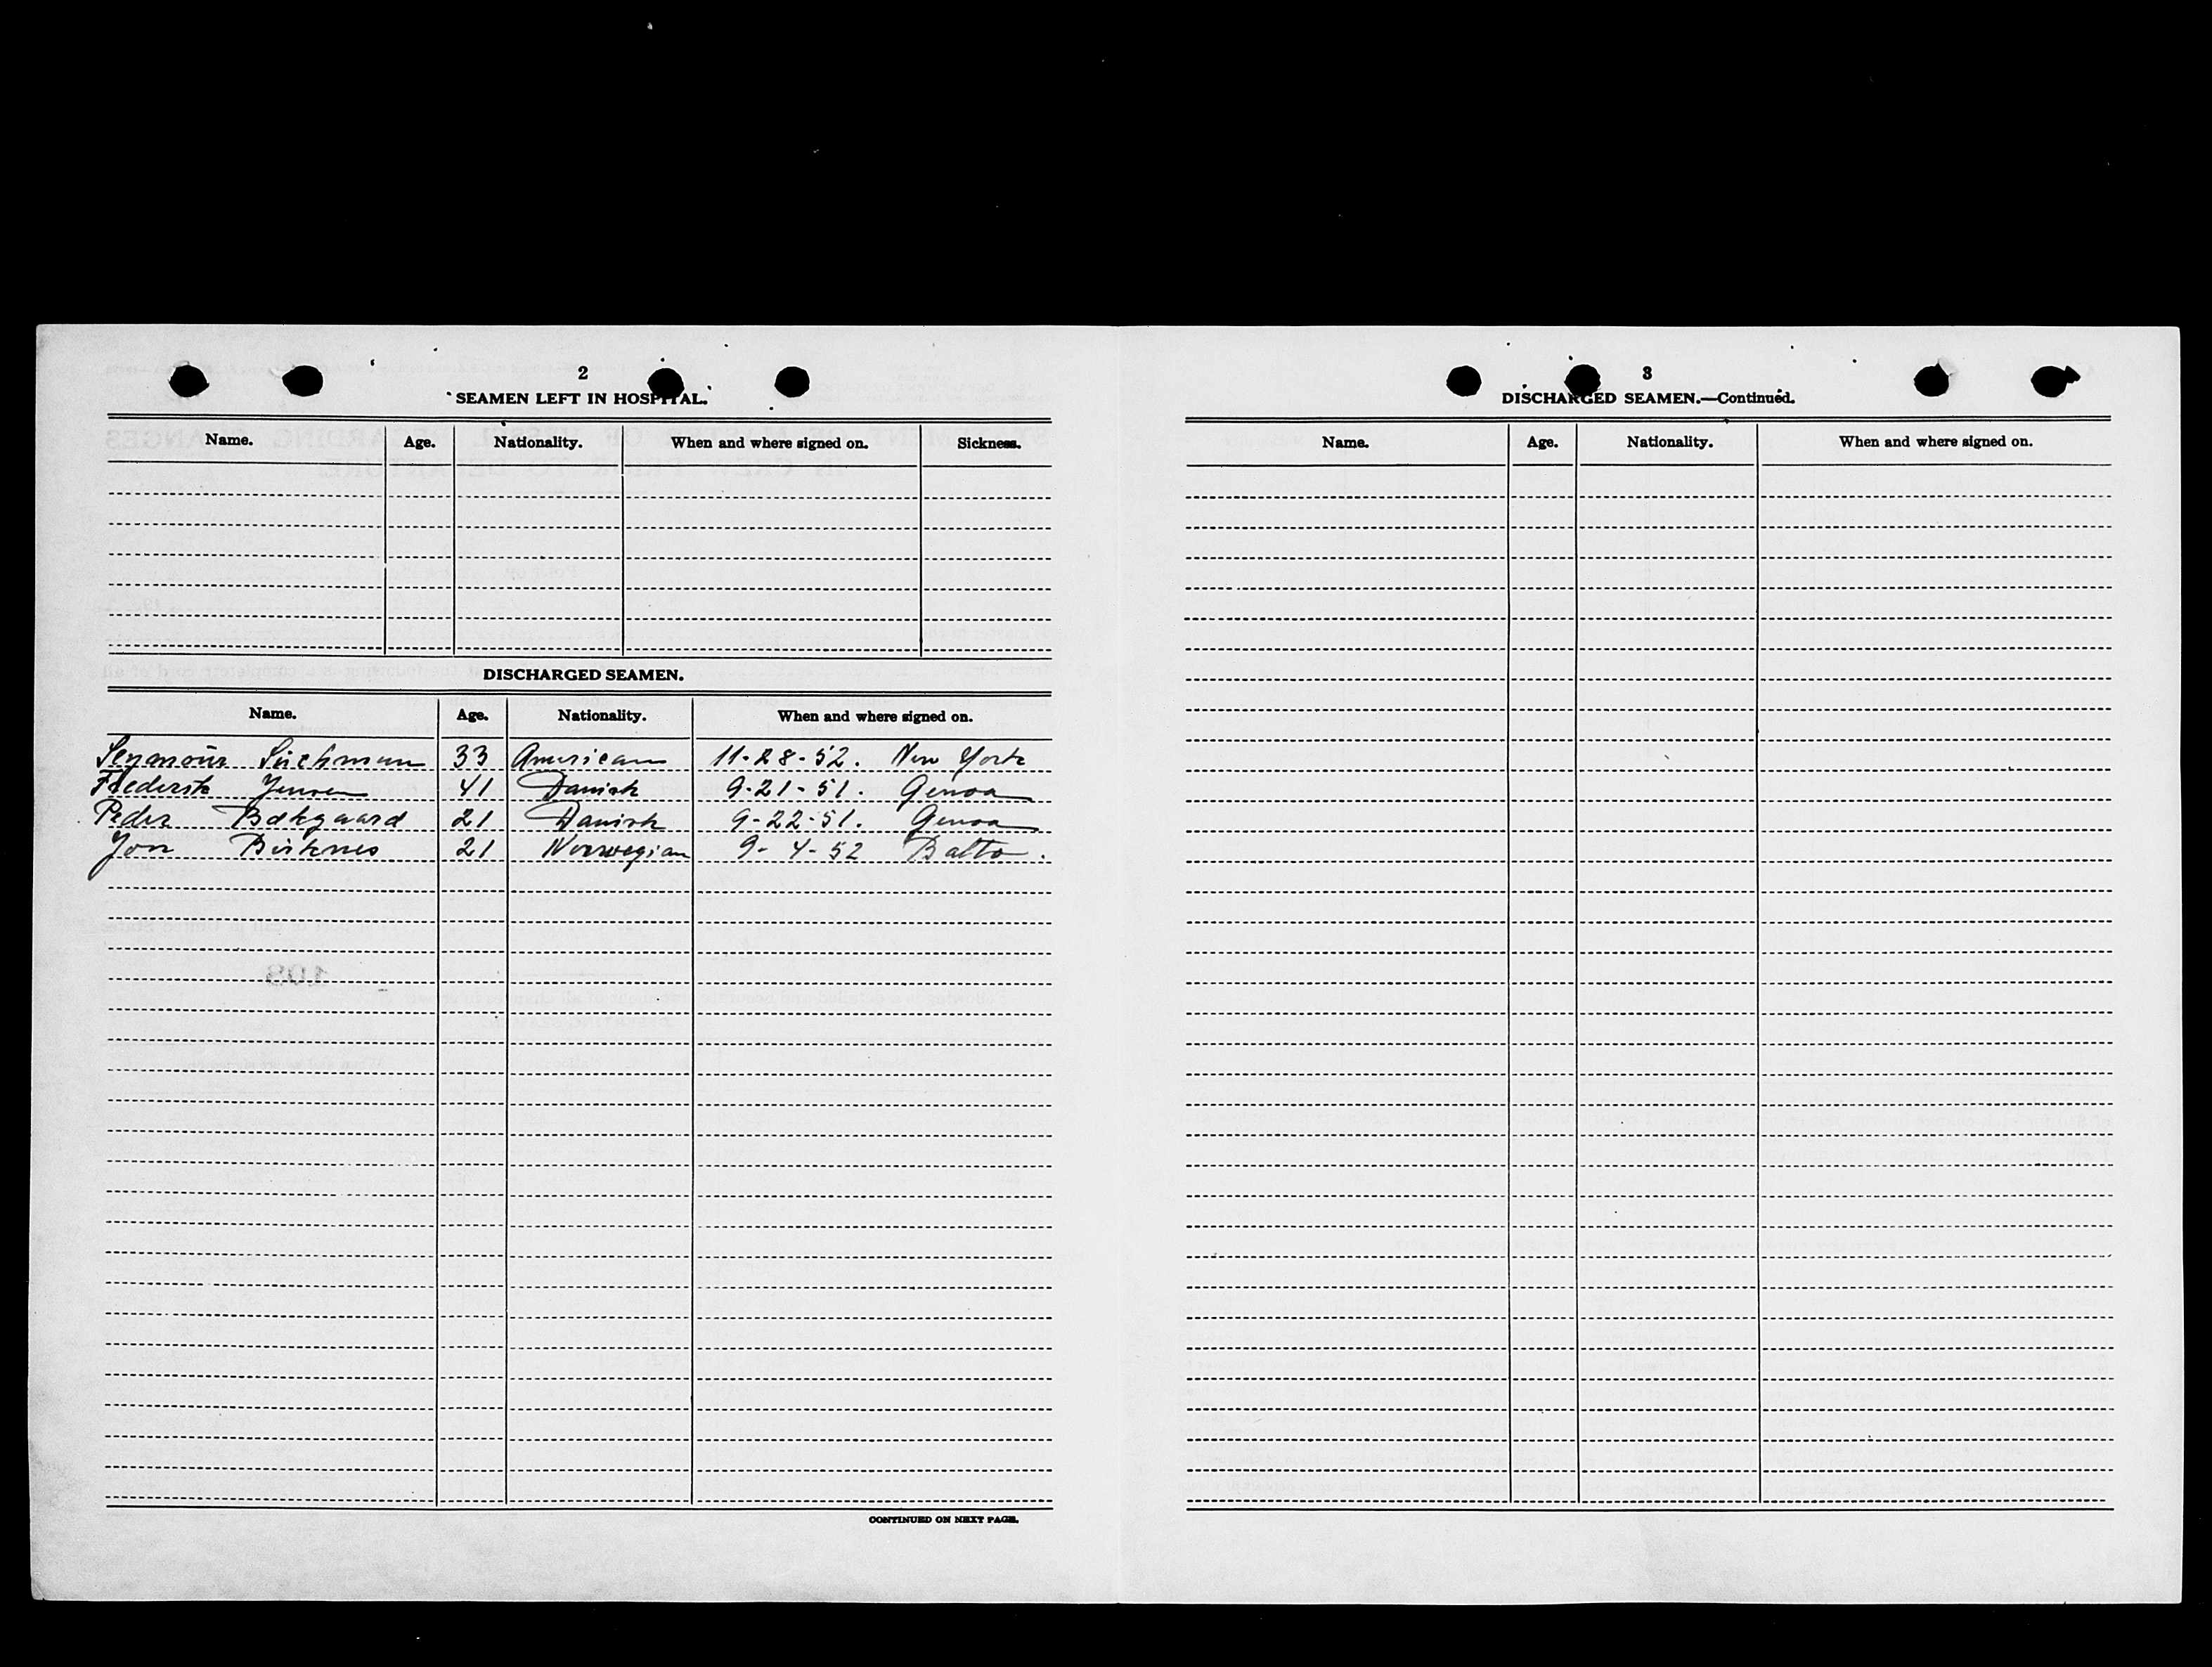 2
SEAMEN LEFT IN HOSPITAL.
Name. Age. Nationality. When and where signed on. Sickness.
DISCHARGED SEAMEN.
Name. Age. Nationality. When and where signed on.
Seymour 33 American 11-28-52. New York
Frederik Jensen 41 Danish 9-21-51. Genoa
Peder Bækgaard 21 Danish 9-22-51. Genoa
Jon Birknes 21 Norwegian 9-4-52 Balto.
CONTINUED ON NEXT PAGE.
3
DISCHARGED SEAMEN.—Continued.
Name. Age. Nationality. When and where signed on.